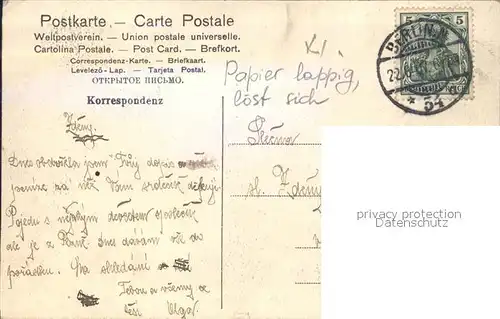 Postkarte. — Carte Postale
Weltpostverein. — Union postale universelle.
Cartolina Postale. — Post Card. — Brefkort.
Correspondenz-Karte. — Briefkaart.
Levelező-Lap. — Tarjeta Postal.
ОТКРЫТОЕ ПИСЬМО.
Korrespondenz
Papier lappig,
löst sich
5 5
BERLIN
54
Dnes obdržela jsem Tvůj dopis a
peníze za něž Vám srdečně děkuji.
Pojedu s nějakým děvčetem společně
ale je z Dnes dávám vše do
pořádku. Na shledání
Tebou a všemi se
těší Olga.
Slečna
sl.
privacy protection
Datenschutz